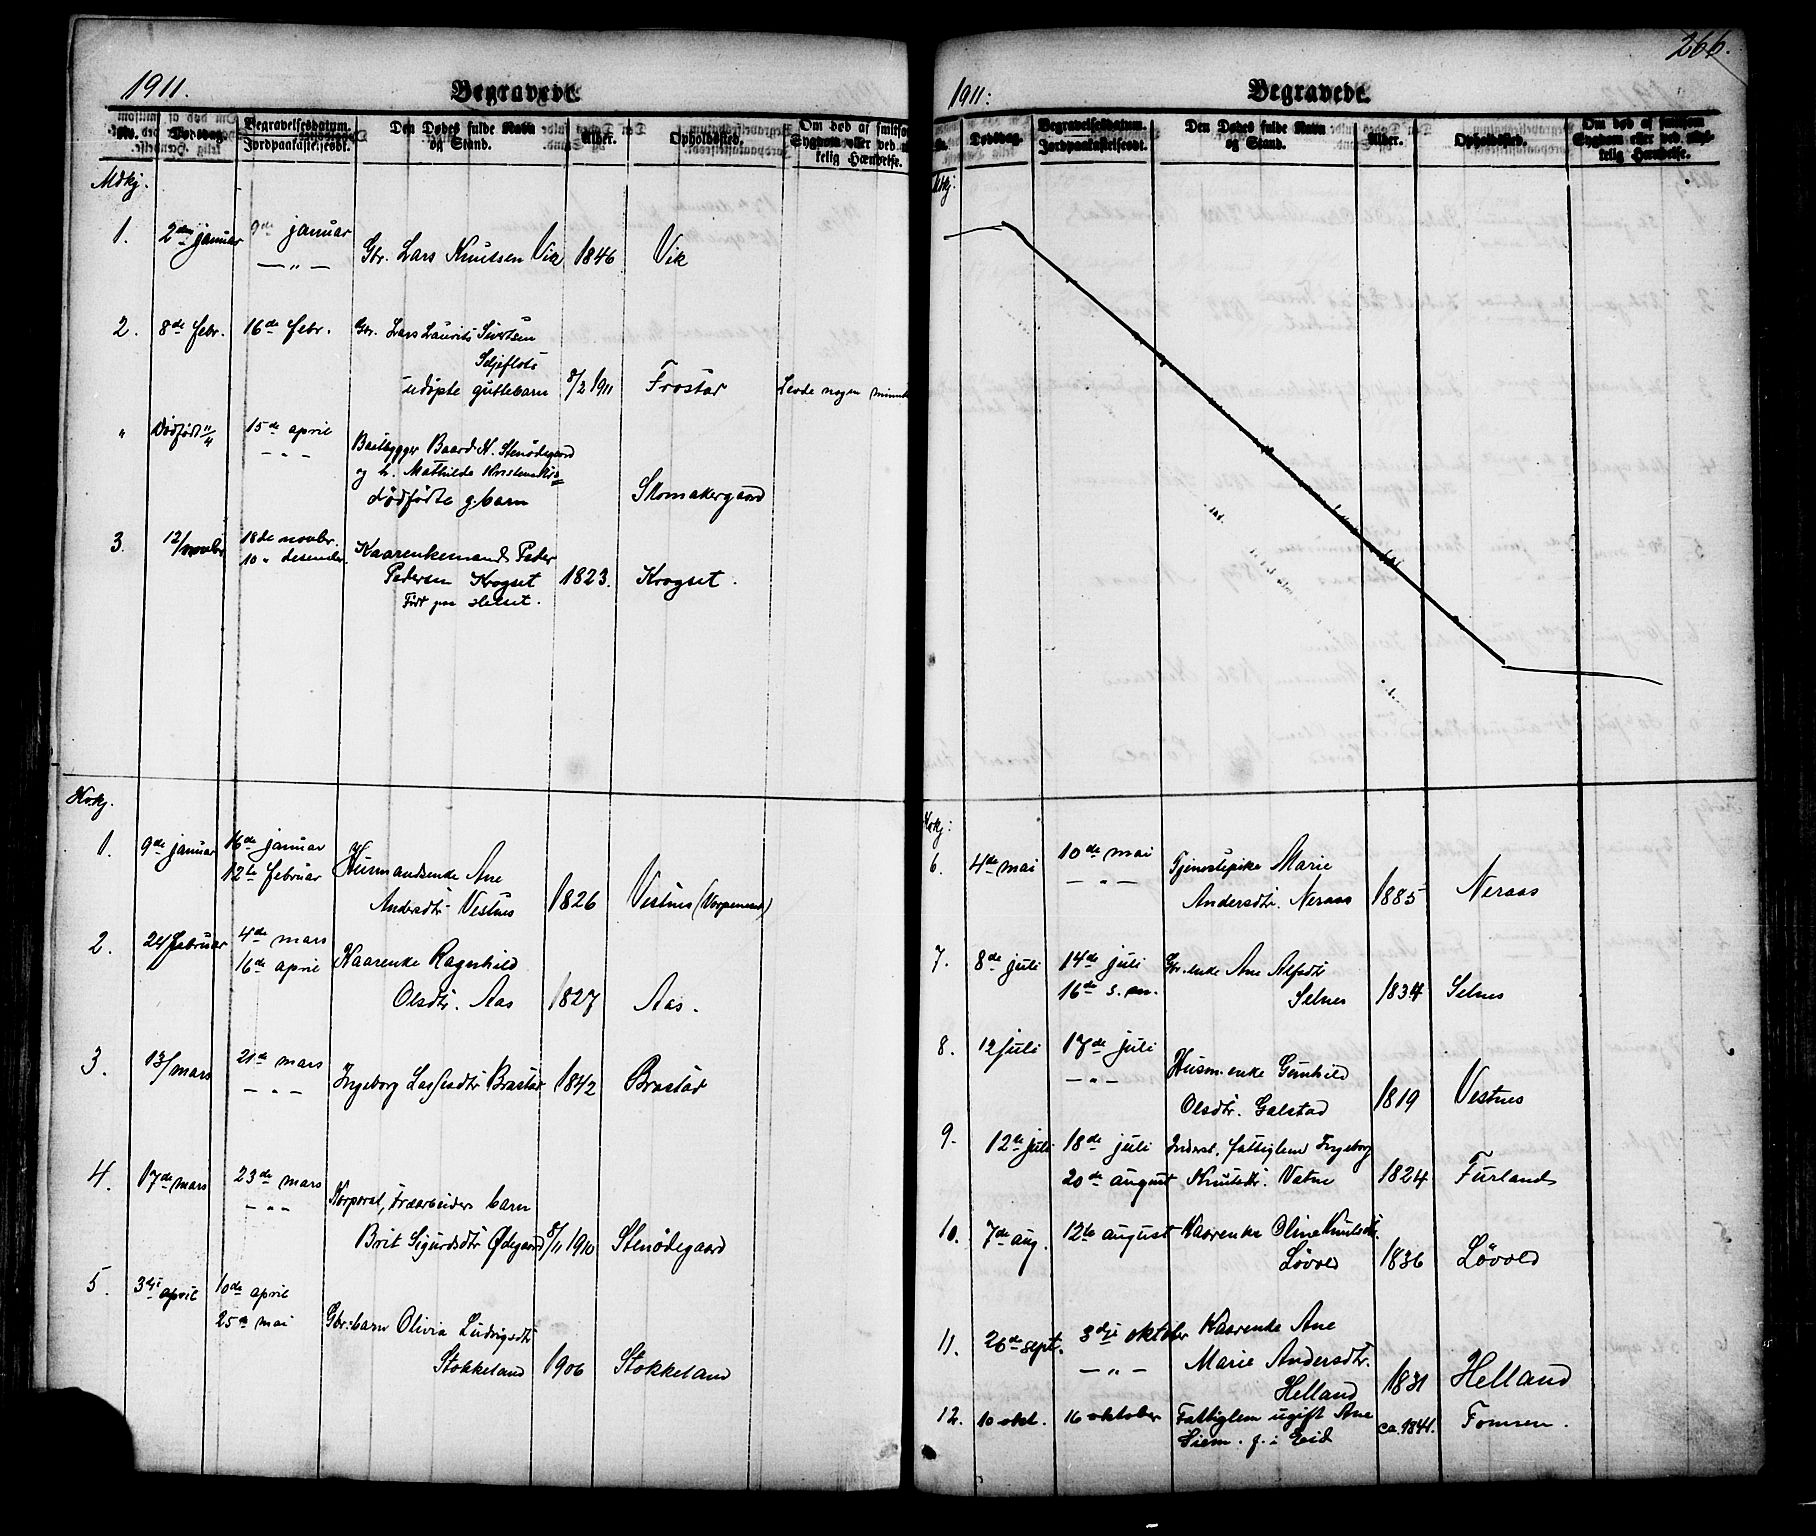 1911.
Begravede.
No.
Dødsdag.
Begravelsesdatum.
Jordpaakastelsesdt.
Den Dødes fulde Navn
og Stand.
Alder.
Opholdssted.
Om død af smitsom
Sygdom eller ved
kelig Hændelse.
Mdkj.
1. 2den januar 9de januar
— " — Gbr. Lars Knutsen Vik 1846 Vik
2. 8de febr. 16de febr. Gbr. Lars Laurits Sivertsen
Seljeflots
udøpte guttebarn 8/2 1911 Frostad Levde nogen minut
" Dødfødt 11/4 15de april
— " — Baardt N. Stenødegaard
og h. Mathilde
dødfødte g.barn Skomakergaard
3. 12/novbr 18de novbr.
10 " desember. Kaarenkemand Peder
Pedersen Krogset 1823. Krogset.
Født paa Helset.
Hvkj.
1. 9de januar 16de januar
12te februar Husmandsenke Ane
Andersdtr. Vestnes 1826 Vestnes
2. 24 februar 4de mars
16de april Kaarenke Ragnhild
Olsdtr. Aas 1827 Aas.
3. 13/mars 21de mars
— " — Ingeborg Lassesdtr Brastad 1842 Brastad
4. 17de mars 23de mars
— " — Korporal, træarbeider barn
Brit Sigurdsdtr Ødegaard 8/11 1910 Stenødegaard
5. 3dje april 10de april
25de mai Gbr.barn Olivia Ludvigsdtr
Stokkeland 1906 Stokkeland
266.
1911.
Begravede.
No.
Dødsdag.
Begravelsesdatum.
Jordpaakastelsesdt.
Den Dødes fulde Navn
og Stand.
Alder.
Opholdssted.
Om død af smitsom
Sygdom eller ved ulyk-
kelig Hændelse.
Mdkj.
Hvkj:
6. 4de mai 10de mai
— " — Tjenestepike Marie
Andersdtr. Neraas 1885 Neraas
7. 8de juli 14de juli
16de s. m. Gbr.enke Ane Alfsdtr
Selnes 1834 Selnes
8. 12 juli 17de juli
— " — Husm.enke Gunhild
Olsdtr. Galstad 1819 Vestnes
9. 12te juli 18de juli
20de august fattiglem Ingeborg
Knutsdtr. Vatne 1824 Furland
10. 7de aug. 12te august Kaarenke Oline Knutsdtr.
Løvold 1836 Løvold
11. 26de sept. 3dje oktober
— " — Kaarenke Ane
Marie Andersdtr.
Helland 1831 Helland
12. 10 okt. 16 oktober Fattiglem ugift Ane
Siem. f. i Eid ca. 1841. Tomren.